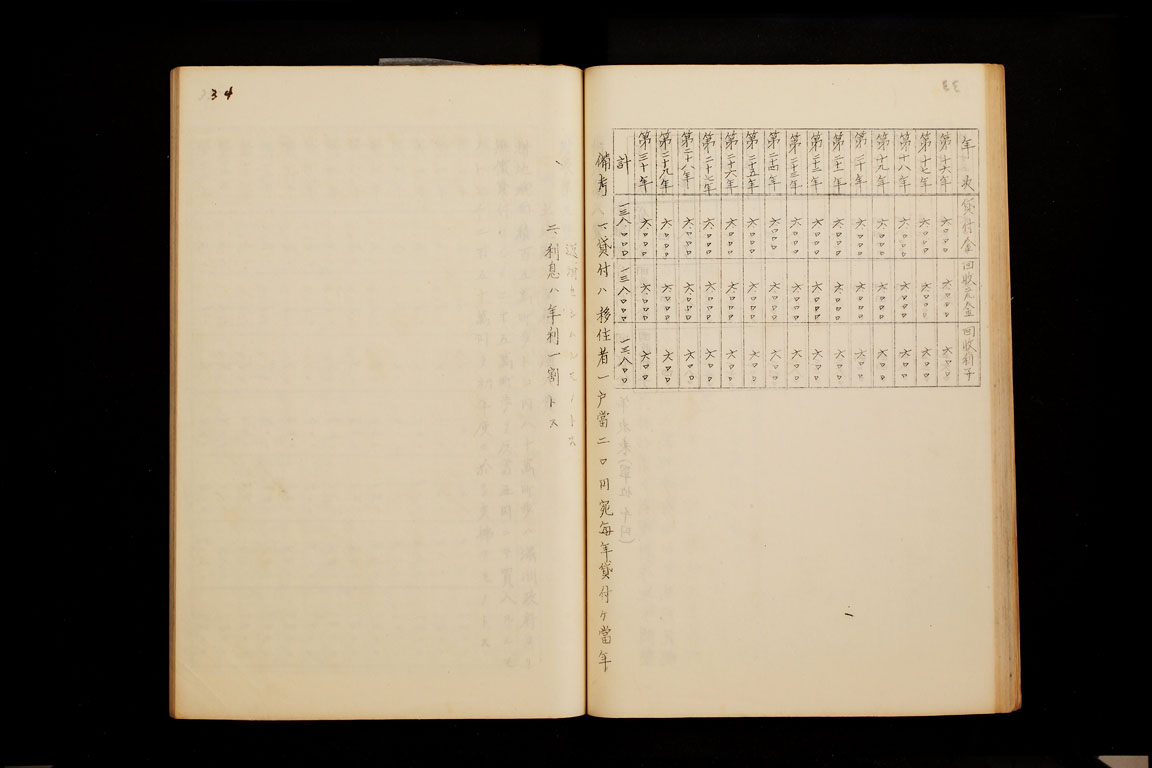 年次 貸付金 回收元金 回收利子
第十六年 六.〇〇〇 六.〇〇〇 六〇〇
第十七年 六.〇〇〇 六.〇〇〇 六〇〇
第十八年 六.〇〇〇 六.〇〇〇 六〇〇
第十九年 六.〇〇〇 六.〇〇〇 六〇〇
第二十年 六.〇〇〇 六.〇〇〇 六〇〇
第二十一年 六.〇〇〇 六.〇〇〇 六〇〇
第二十二年 六.〇〇〇 六.〇〇〇 六〇〇
第二十三年 六.〇〇〇 六.〇〇〇 六〇〇
第二十四年 六.〇〇〇 六.〇〇〇 六〇〇
第二十五年 六.〇〇〇 六.〇〇〇 六〇〇
第二十六年 六.〇〇〇 六.〇〇〇 六〇〇
第二十七年 六.〇〇〇 六.〇〇〇 六〇〇
第二十八年 六.〇〇〇 六.〇〇〇 六〇〇
第二十九年 六.〇〇〇 六.〇〇〇 六〇〇
第三十年 六.〇〇〇 六.〇〇〇 六〇〇
計 一三八.〇〇〇 一三八.〇〇〇 一三.八〇〇
備考 一、貸付ハ移住者一戸當二〇円宛毎年貸付ケ當年
返済セシムルモノトス
二、利息ハ年利一割トス
34